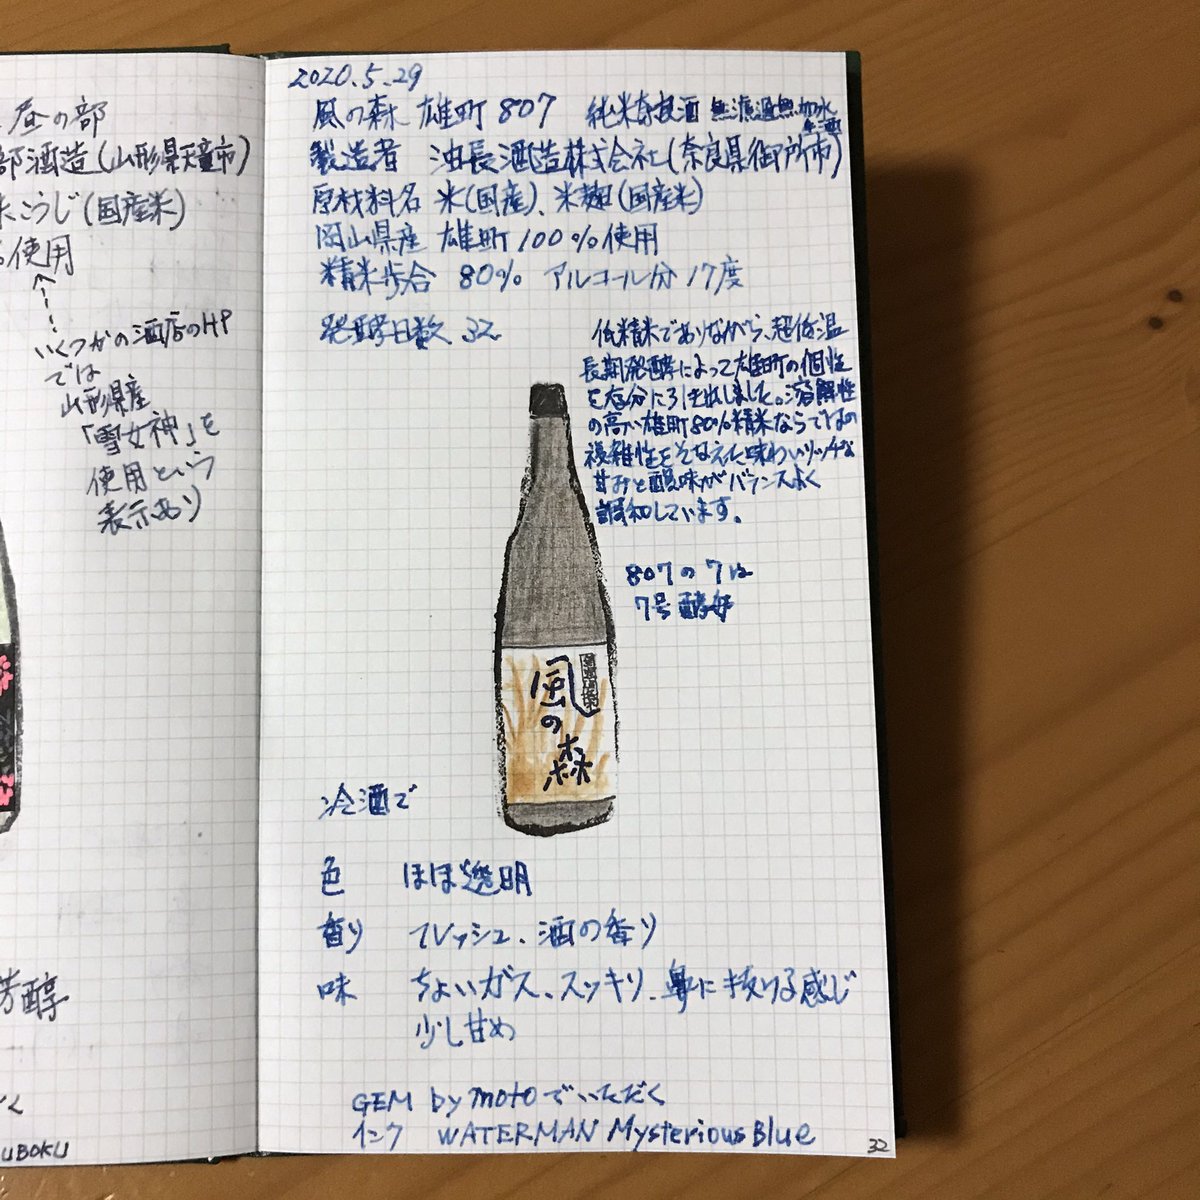 昼の部
部酒造(山形県天童市)
米こうじ(国産米)
%使用
いくつかの酒店のHP
では
山形県産
「雪女神」を
使用という
表示あり
芳醇
UBOKU
2020.5.29
風の森 雄町 807 純米奈良酒 無濾過無加水
生酒
製造者 油長酒造株式会社(奈良県御所市)
原材料名 米(国産)、米麹(国産米)
岡山県産 雄町100%使用
精米歩合 80% アルコール分 17度
発酵日数 32
低精米でありながら、超低温
長期発酵によって雄町の個性
を存分に引き出しました。溶解性
の高い雄町80%精米ならではの
複雑性をそなえた味わいリッチな
甘みと酸味がバランスよく
調和しています。
807の7は
7号酵母
風の森
冷酒で
色 ほぼ透明
香り フレッシュ、酒の香り
味 ちょいガス、スッキリ、鼻に抜ける感じ
少し甘め
GEM by motoでいただく
インク WATERMAN Mysterious Blue
32